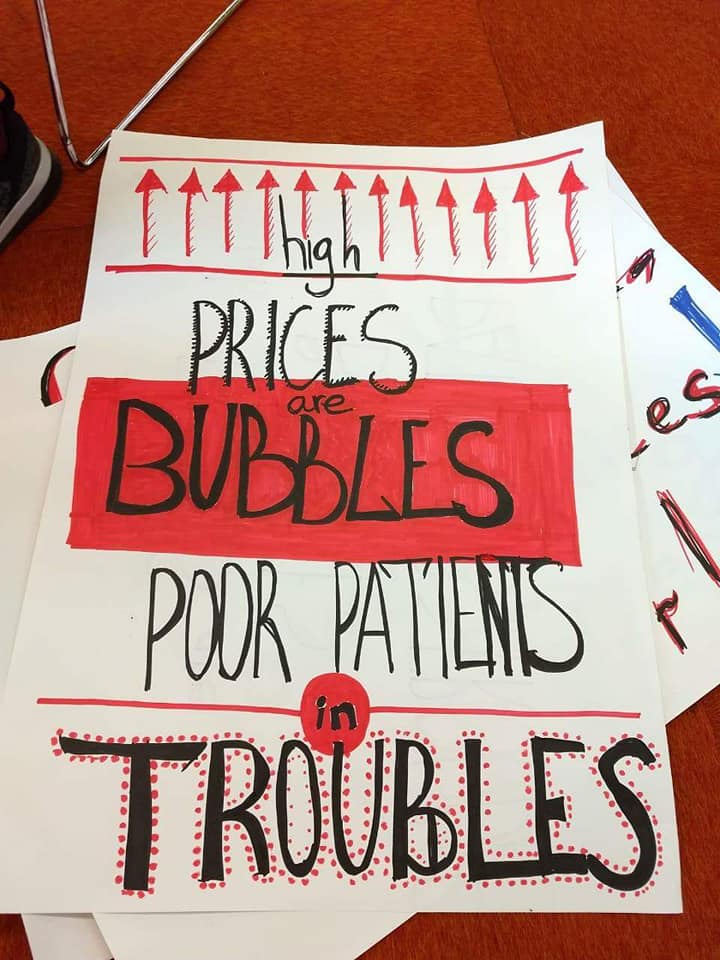 high
PRICES
are
BUBBLES
POOR PATIENTS
in
TROUBLES